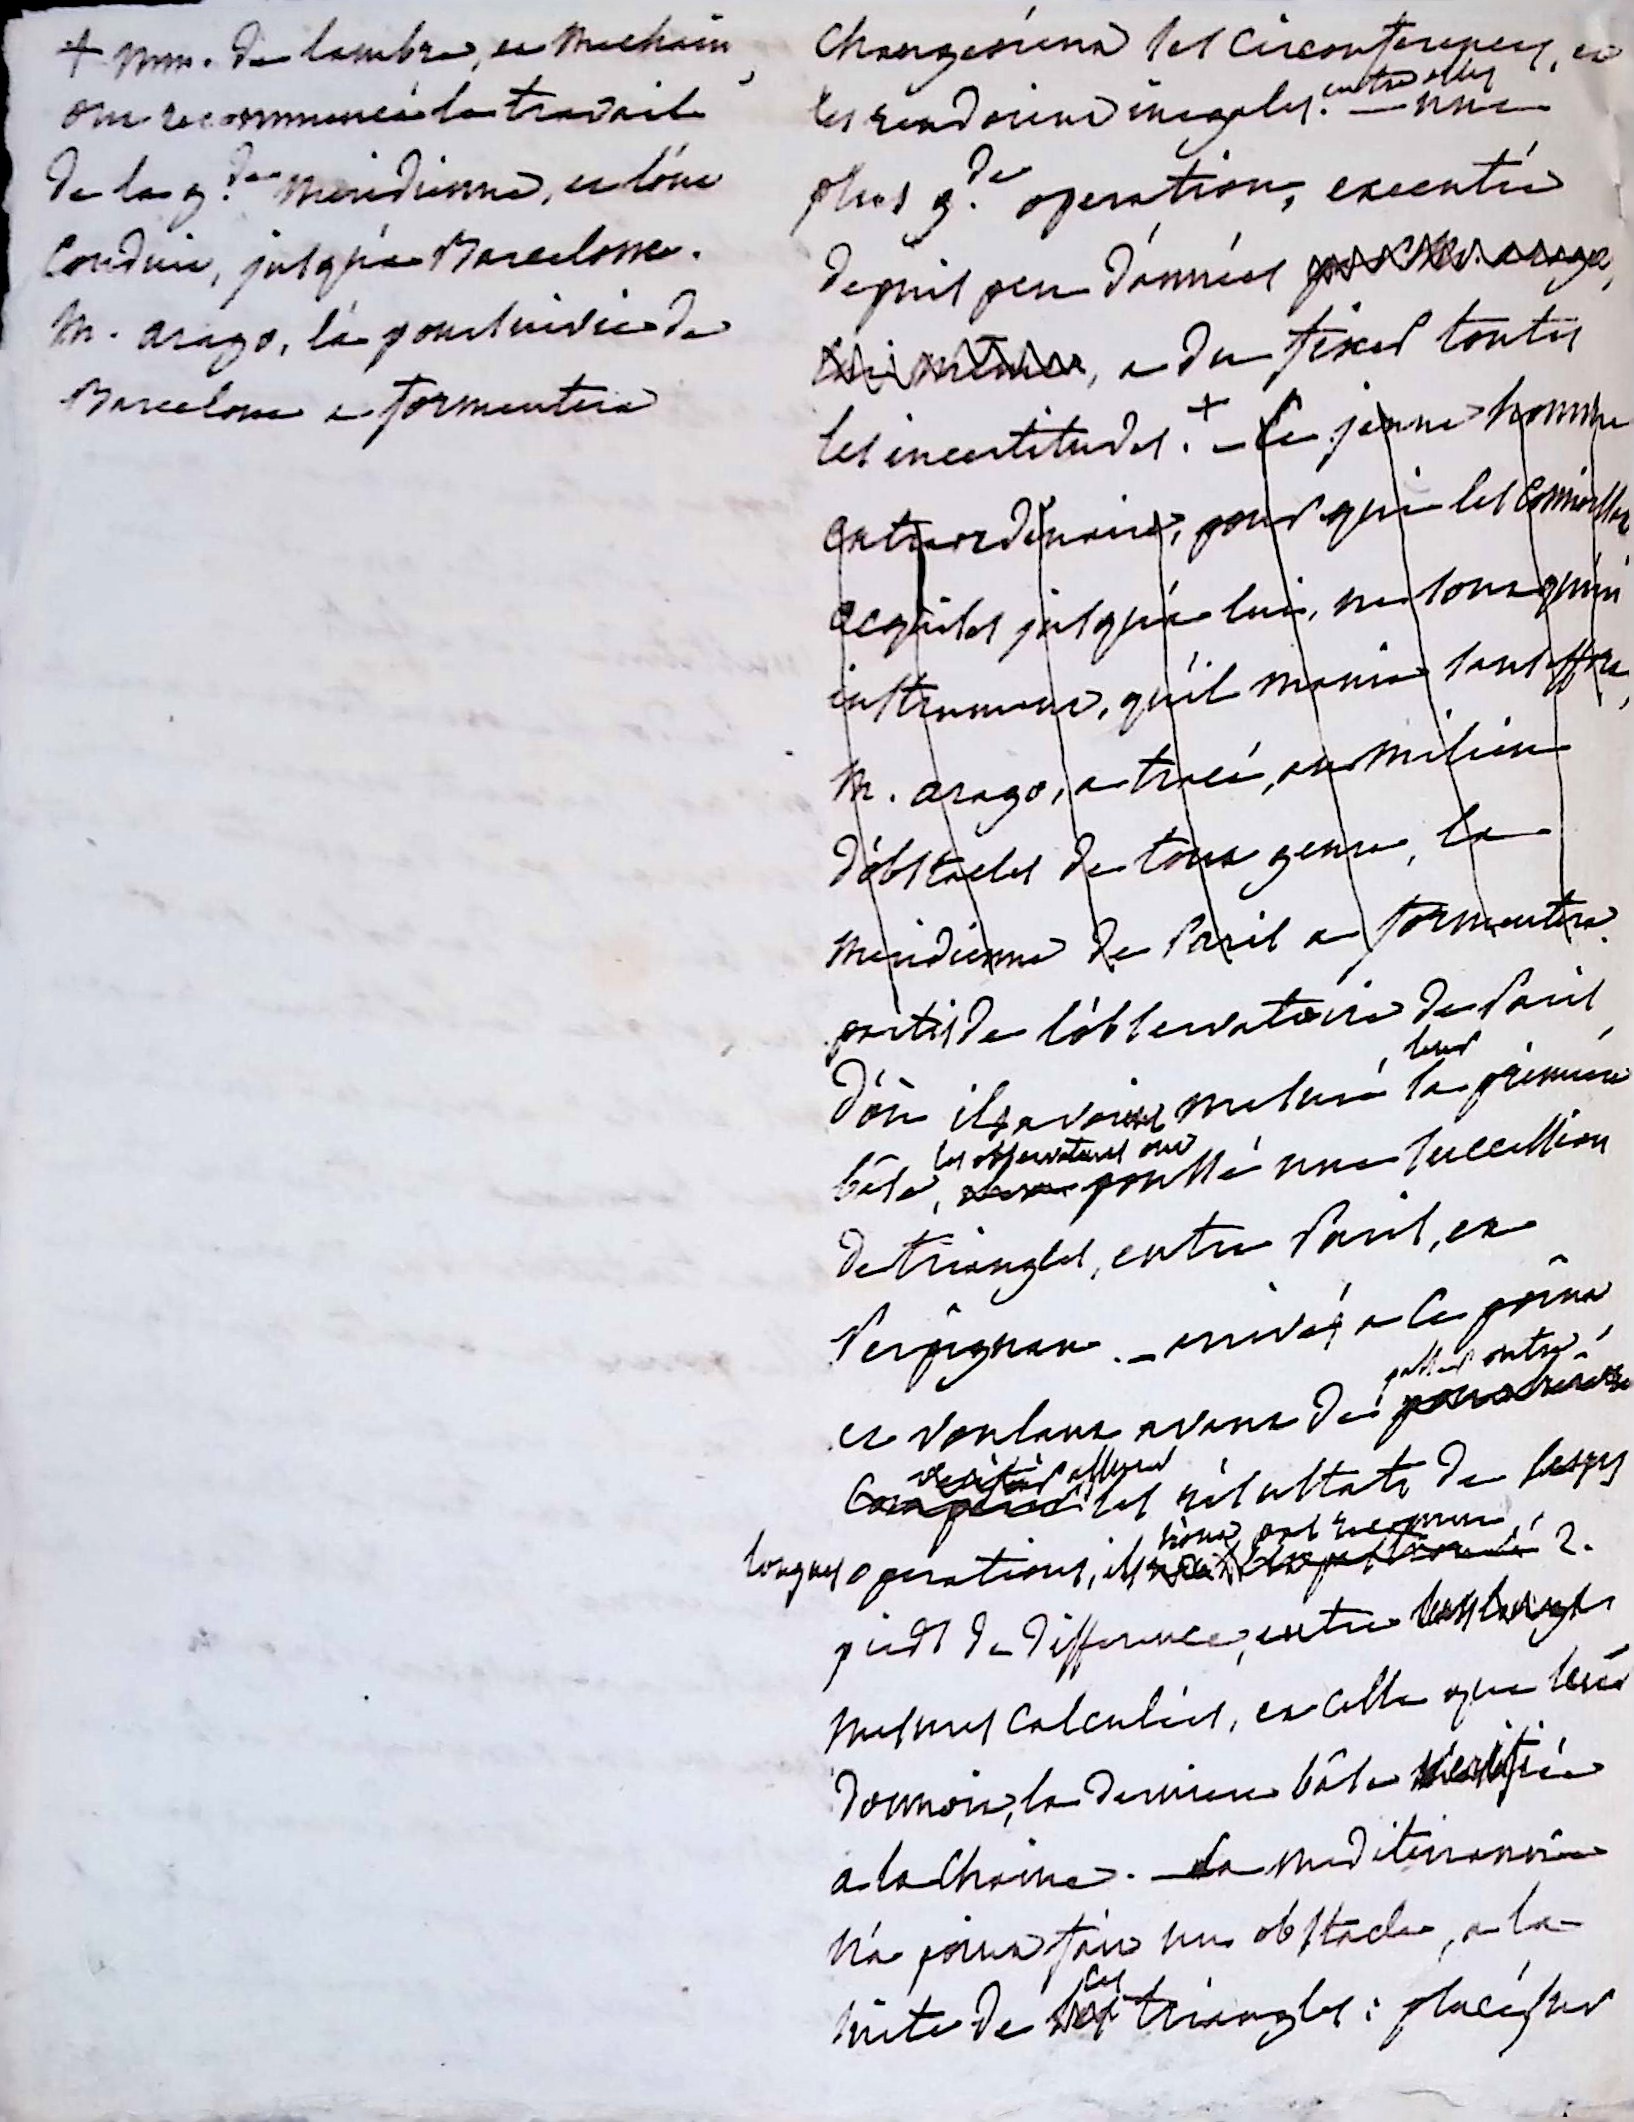 + mm. de lambre, et Mechain,
ont recommencé le travail
de la g.de meridienne, et l'ont
Conduit, jusqu'a Barcelonne.
M. arago, l'a poursuivie de
Barcelone a formentera
Changeoient les Circonferences, et
les rendoient inegales. entre elles — une
plus g.de operation, executée
depuis peu d'années par M. arago,
lui même, a du fixer toutes
les incertitudes. + — Ce jeune homme
extraordinaire, pour qui les
acquises jusqu'a lui, ne sont qu'un
instrument, qu'il manie sans effort,
M. arago, a tracé, au milieu
d'obstacles de tout genre, la
meridienne de Paris a formentera.
partis de l'observatoire de Paris,
d'où ils avoient mesuré leur la premiere
bâse, les observateurs ont poussé une succession
de triangles, entre Paris, et
Perpignan. — arrivés a ce point
et voulant avant de passer outre
assurer les résultats de
longues operations, ils n'ont pas reconnu 2.
pieds de difference, entre
mesures calculées, et celle que leur
donnoit, la derniere bâse verifiée
a la Chaine. — La mediterannée
n'a point fait un obstacle, a la
suite de ces triangles : placés sur